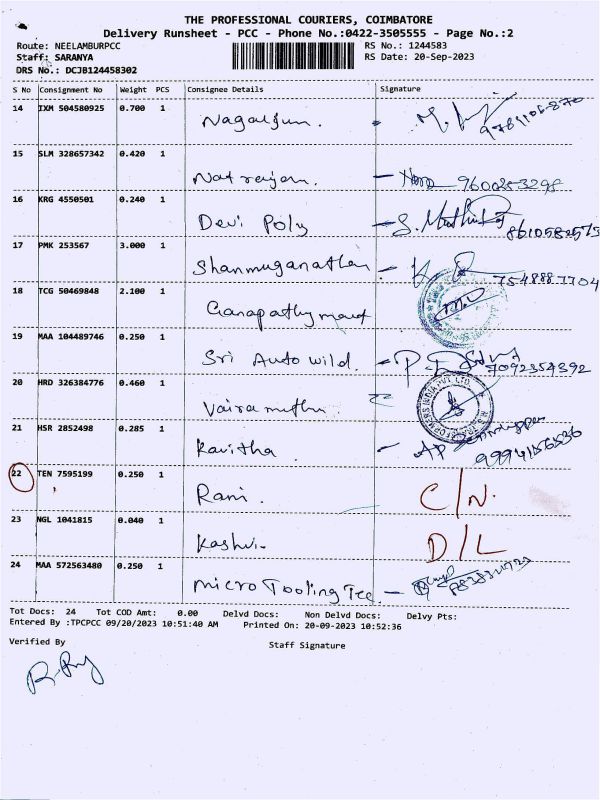 THE PROFESSIONAL COURIERS, COIMBATORE
Delivery Runsheet - PCC - Phone No.:0422-3505555 - Page No.:2
Route: NEELAMBURPCC RS No.: 1244583
Staff: SARANYA RS Date: 20-Sep-2023
DRS No.: DCJB124458302
S No Consignment No Weight PCS Consignee Details Signature
14 IXM 504580925 0.700 1 Nagarjun.
15 SLM 328657342 0.420 1 Natrajan. 9600253298
16 KRG 4550501 0.240 1 Devi Poly 8610582573
17 PMK 253567 3.000 1 Shanmuganathan 7548887704
18 TCG 50469848 2.100 1 Ganapathy
19 MAA 104489746 0.250 1 Sri Auto wild. 7092354392
20 HRD 326384776 0.460 1 Vairamuthu
21 HSR 2852498 0.285 1 Kavitha
22 TEN 7595199 0.250 1 Rani. C/N.
23 NGL 1041815 0.040 1 Kashvi. D/L
24 MAA 572563480 0.250 1 micro Tooling Tec
Tot Docs: 24 Tot COD Amt: 0.00 Delvd Docs: Non Delvd Docs: Delvy Pts:
Entered By :TPCPCC 09/20/2023 10:51:40 AM Printed On: 20-09-2023 10:52:36
Verified By Staff Signature